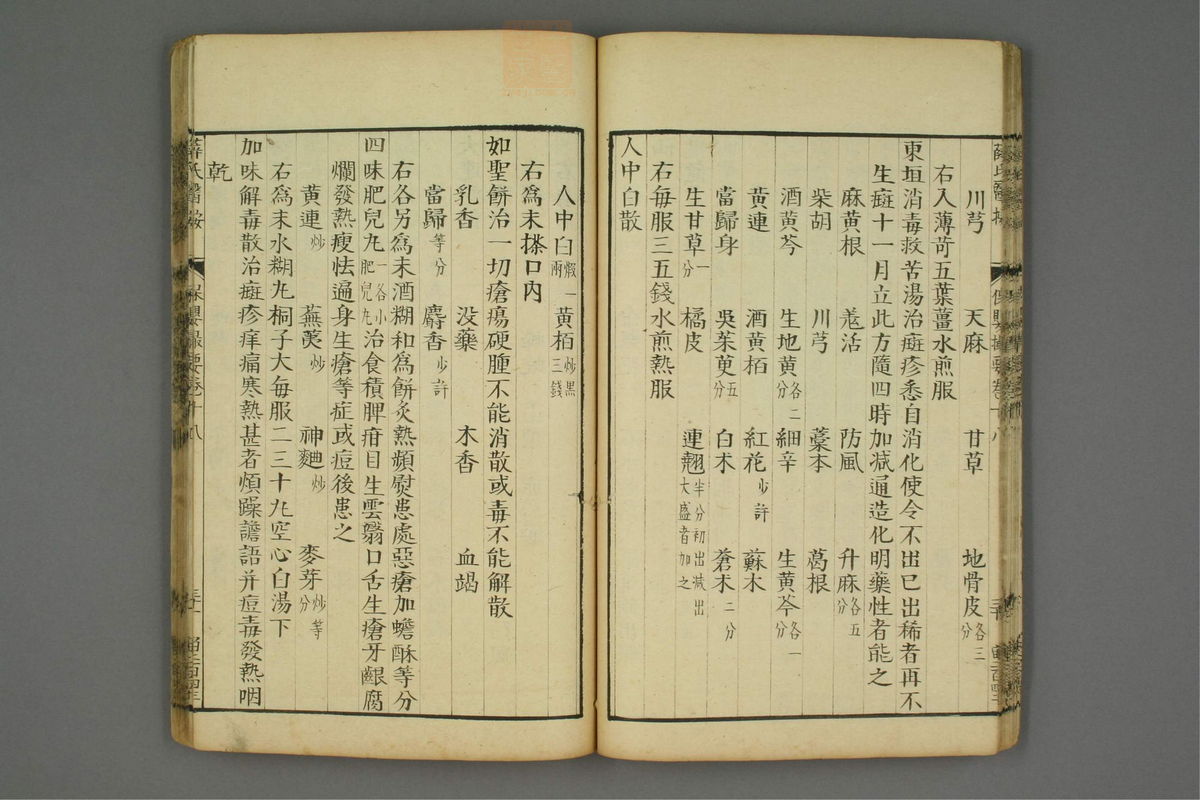 川芎 天麻 甘草 地骨皮各三分
右入薄荷五葉薑水煎服
東垣消毒救苦湯治癍疹悉自消化使令不出已出稀者再不
生癍十一月立此方隨四時加減通造化明藥性者能之
麻黃根 羗活 防風 升麻各五分
柴胡 川芎 藁本 葛根
酒黃芩 生地黃各二分 細辛 生黃芩各一分
黃連 酒黃栢 紅花少許 蘇木
當歸身 吳茱萸五分 白术 蒼术二分
生甘草一分 橘皮 連翹半分初出減出大盛者加之
右每服三五錢水煎熱服
人中白散
人中白煅一兩 黃栢炒黑三錢
右爲末搽口內
如聖餅治一切瘡瘍硬腫不能消散或毒不能解散
乳香 没藥 木香 血竭
當歸等分 麝香少許
右各另爲末酒糊和爲餅灸熱頻熨患處惡瘡加蟾酥等分
四味肥兒丸一名小肥兒丸治食積脾疳目生雲翳口舌生瘡牙齦腐
爛發熱瘦怯遍身生瘡等症或痘後患之
黃連炒 蕪荑炒 神麯炒 麥芽炒等分
右爲末水糊丸桐子大每服二三十丸空心白湯下
加味解毒散治癍疹痒痛寒熱甚者煩躁譫語并痘毒發熱咽
乾
薛氏醫按 保嬰撮要卷十八